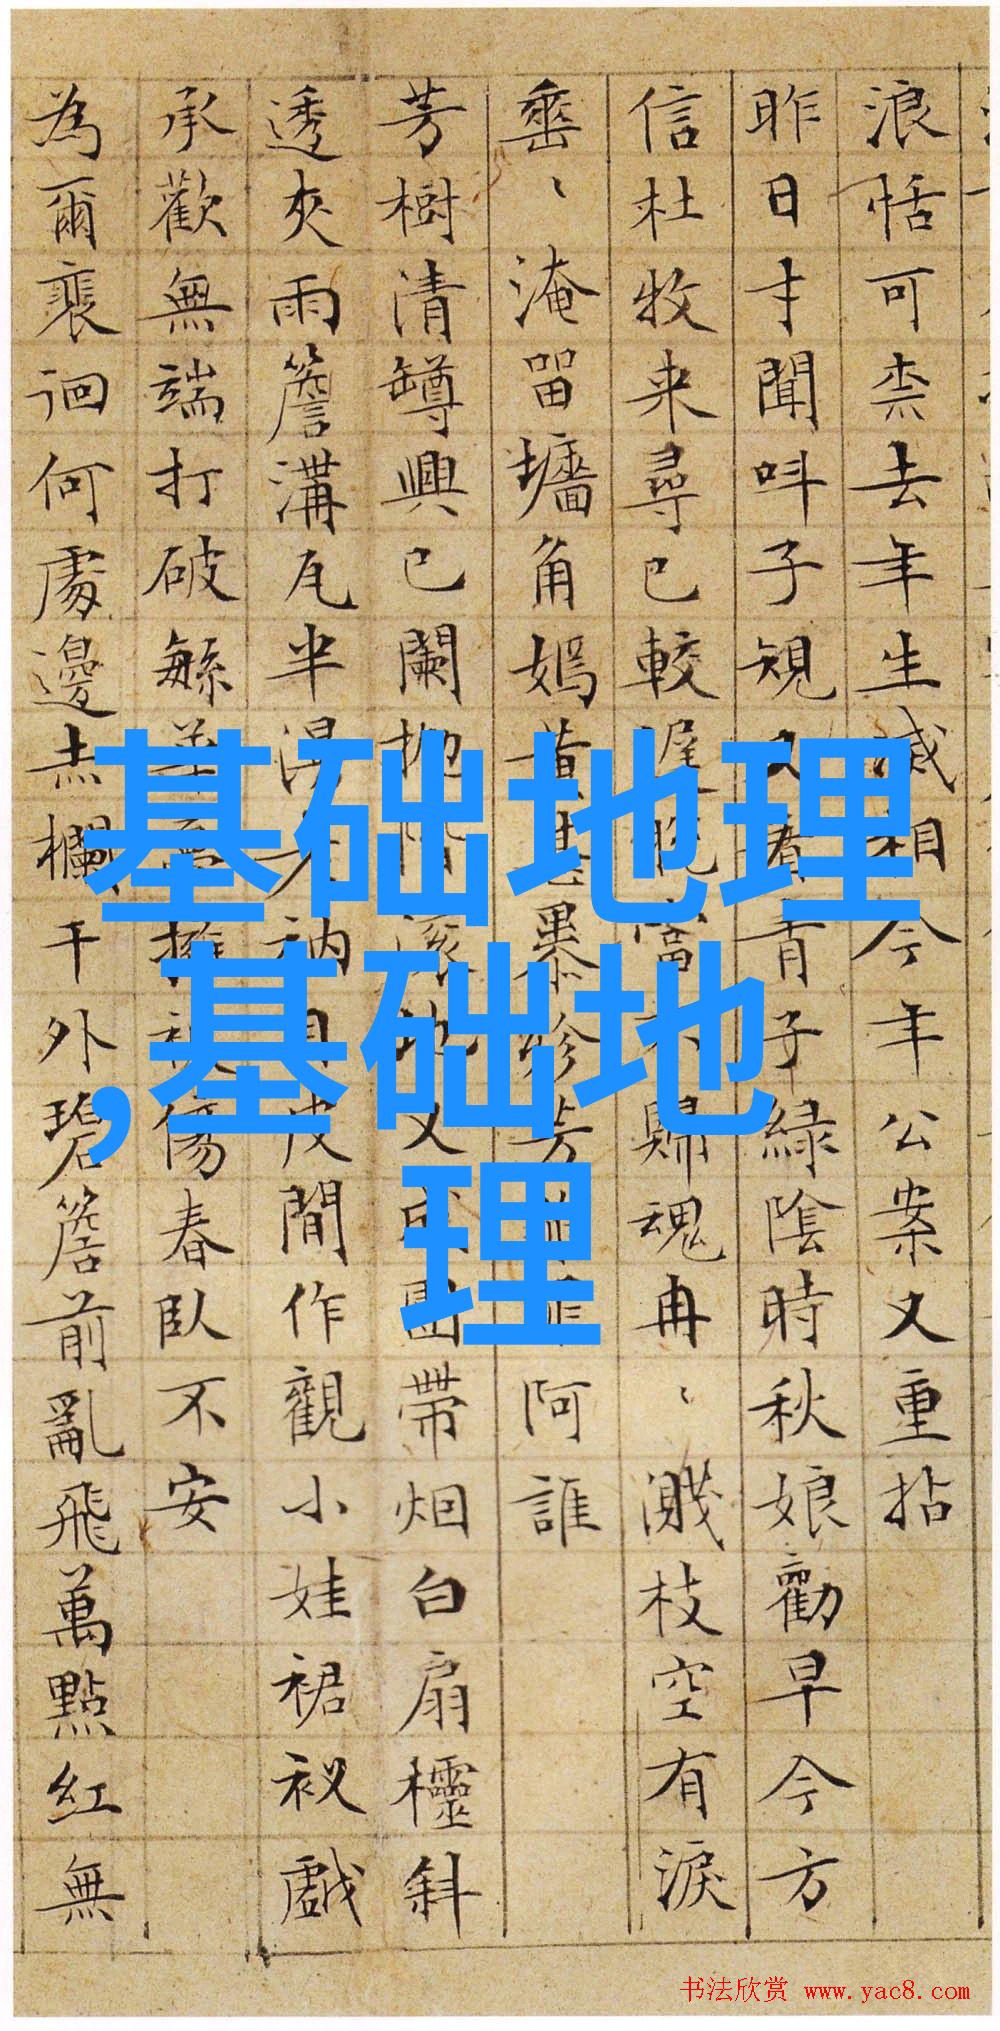 基础地理
,基础地
理
浪恬可柰去年生滅相今年公案又重拈
昨日才聞呌子規又看青子綠陰時秋娘勸早今方
信杜牧来尋已較遲 歸魂冉〻濺枝空有淚
〻淹留墻角嫣黄 芳 阿誰
芳樹清罇興已闌抛 滚地又成團帶烟白扇欞斜
透夾雨簷溝瓦半 衲 皮閒作觀小娃裙衩戲
承歡無端打破 傷春臥不安
為爾裵徊何處邊赤欄干外碧簷前亂飛萬點紅無
书法欣赏 www.yac8.com